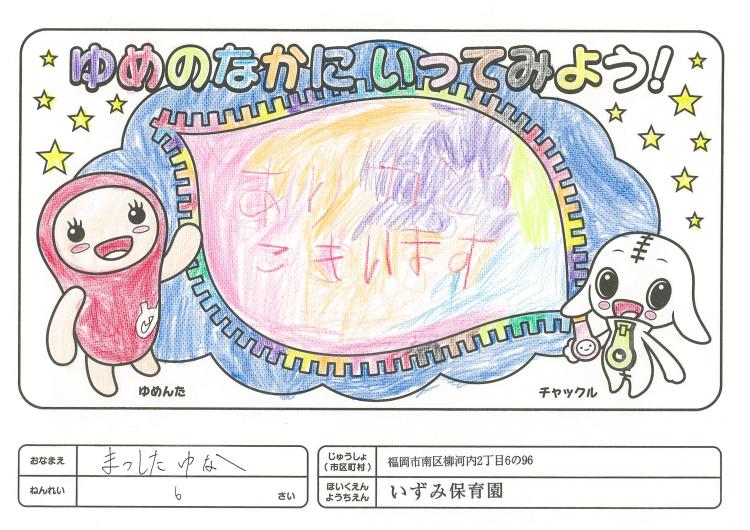 ゆめのなかに いってみよう!
ありがとう
ございます
ゆめんた
チャックル
おなまえ
まつした ゆな
ねんれい 6 さい
じゅうしょ
(市区町村) 福岡市南区柳河内2丁目6の96
ほいくえん
ようちえん いずみ保育園